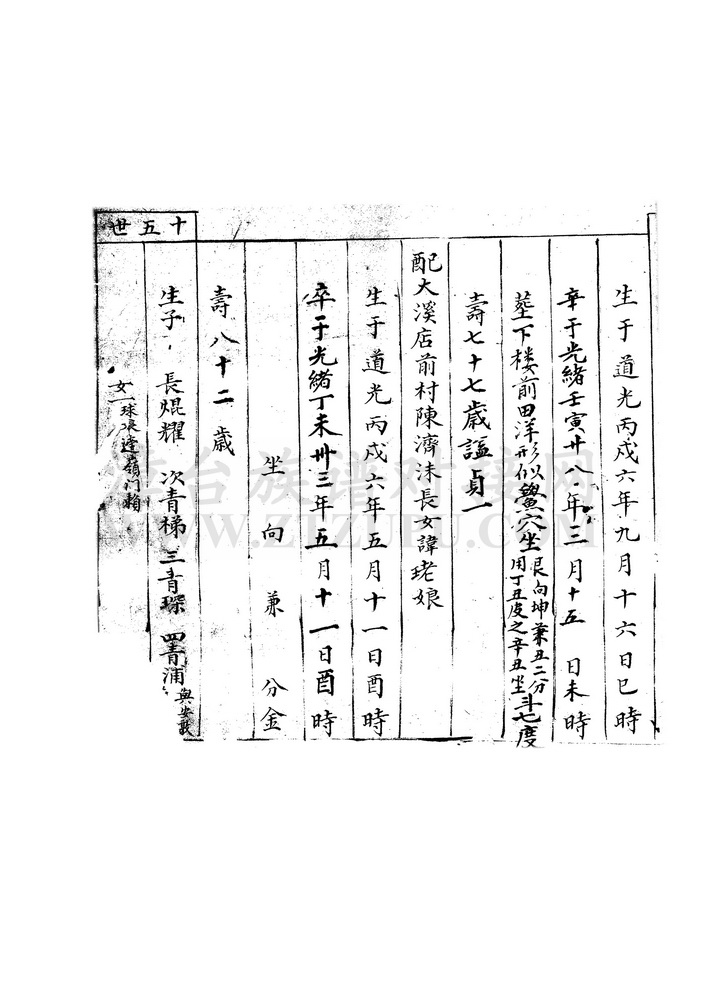 生于道光丙戌六年九月十六日巳時
卒于光緒壬寅廿八年二月十五日未時
塟下楼前田洋形似鱟穴坐艮向坤兼丑二分
用丁丑皮之辛丑坐斗七度
壽七十七歲謚貞一
配大溪店前村陳濟沫長女諱珯娘
生于道光丙戌六年五月十一日酉時
卒于光緒丁未卅三年五月十一日酉時
坐向兼分金
壽八十二歲
生子長焜耀次青梯三青琛四青浦
女一
十五世
唐台族谱对接网
WWW.ZTZUPU.COM